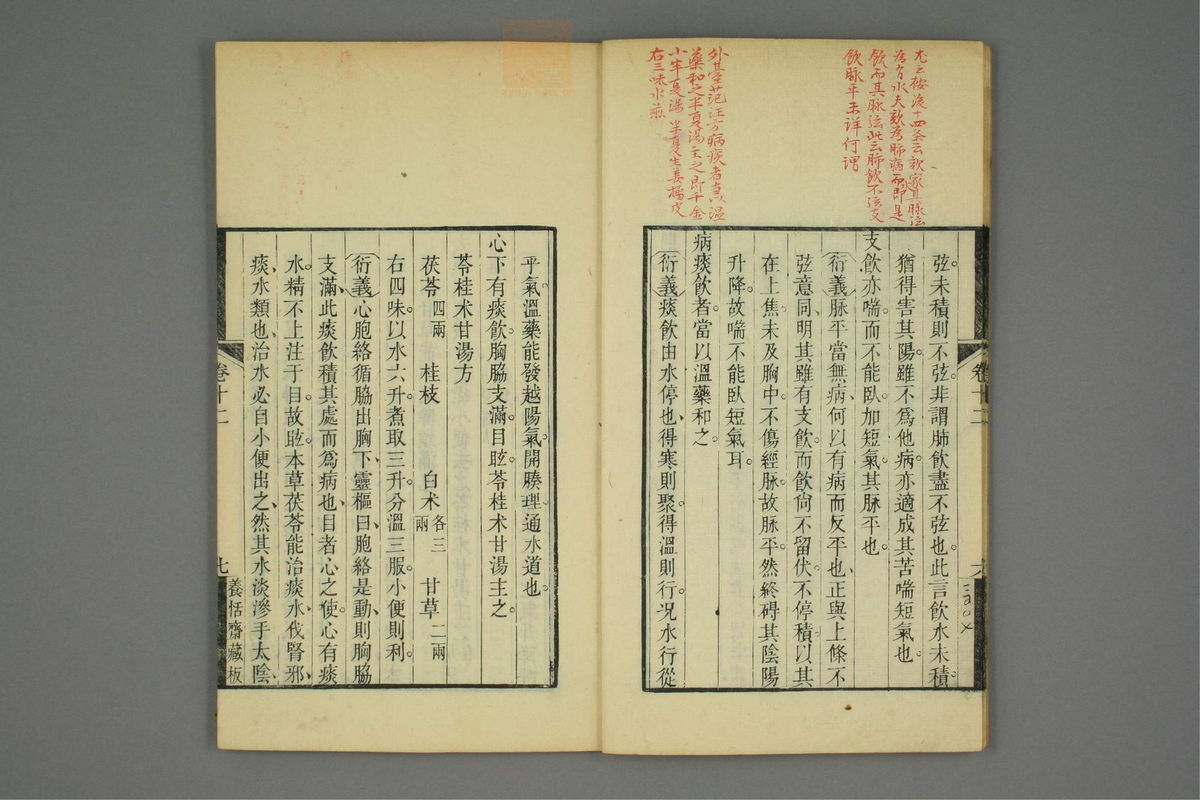 尤云按後十四条云欬家其脉弦
為有水夫欬為肺病而即是
飲而其脉弦此云肺飲不弦支
飲脉平未詳何謂
弦未積則不弦非謂肺飲盡不弦也此言飲水未積
猶得害其陽雖不爲他病亦適成其苦喘短氣也
支飲亦喘而不能臥加短氣其脉平也
衍義脉平當無病何以有病而反平也正與上條不
弦意同明其雖有支飲而飲尙不留伏不停積以其
在上焦未及胸中不傷經脉故脉平然終碍其陰陽
升降故喘不能臥短氣耳
外臺范汪方病痰者當以温
藥和之半夏湯主之即千金
小半夏湯 半夏生姜橘皮
右三味水煎
病痰飲者當以溫藥和之
衍義痰飲由水停也得寒則聚得溫則行况水行從
卷十二
六
乎氣溫藥能發越陽氣開腠理通水道也
心下有痰飲胸脇支滿目眩苓桂术甘湯主之
苓桂术甘湯方
茯苓四兩 桂枝 白术各三兩 甘草二兩
右四味以水六升煮取三升分溫三服小便則利
衍義心胞絡循脇出胸下靈樞曰胞絡是動則胸脇
支滿此痰飲積其處而爲病也目者心之使心有痰
水精不上注于目故眩本草茯苓能治痰水伐腎邪
痰水類也治水必自小便出之然其水淡滲手太陰
卷十二
七
養恬齋藏板